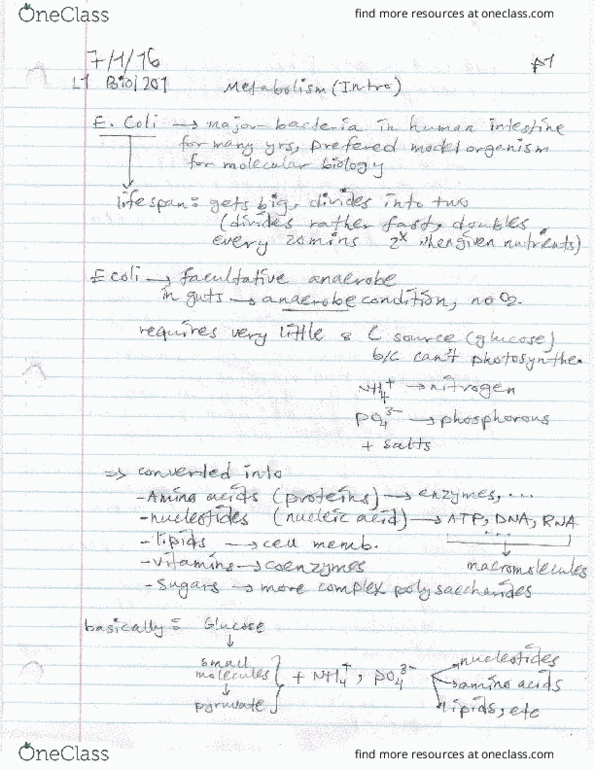 OneClass
find more resources at oneclass.com
7/1/16
p1
L1 Biol 201 Metabolism (Intro)
E. Coli → major bacteria in human intestine
for many yrs, prefered model organism
for molecular biology
lifespan: gets big, divides into two
(divides rather fast, doubles
every 20mins 2ˣ when given nutrients)
E coli → facultative anaerobe
in guts → anaerobe condition, no O₂.
requires very little : C source (glucose)
b/c can't photosynthe.
NH₄⁺ → nitrogen
PO₄³⁻ → phosphorous
+ salts
⇒ converted into
- Amino acids (proteins) → enzymes, ...
- nucleotides (nucleic acid) → ATP, DNA, RNA
...
- lipids → cell memb.
- vitamins → coenzymes macromolecules
- Sugars → more complex polysaccharides
basically: Glucose
↓
small molecules } + NH₄⁺, PO₄³⁻ → nucleotides
↓ → amino acids
pyruvate → lipids, etc
OneClass
find more resources at oneclass.com